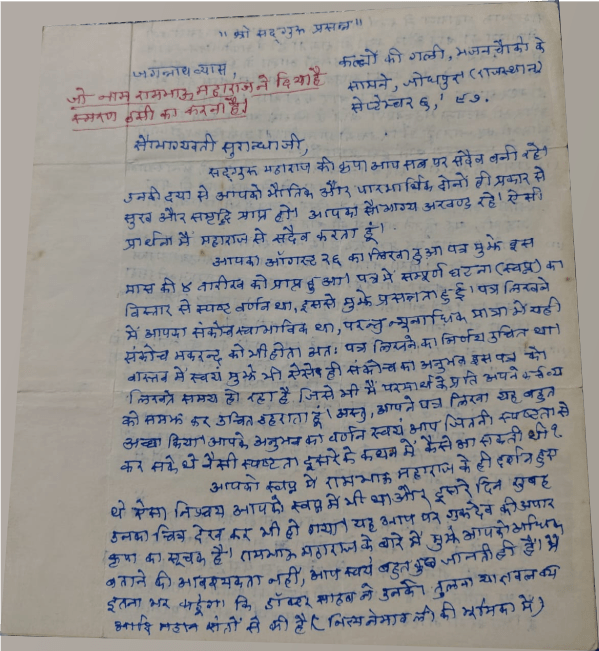 " श्री सद्‌गुरू प्रसन्न "
जगन्नाथ व्यास,
कल्लों की गली, भजन चौकी के
सामने, जोधपुर (राजस्थान)
सेप्टेम्बर ६,' ८७.
जो नाम रामभाऊ महाराज ने दिया है
स्मरण उसी का करना है।
सौभाग्यवती सुसन्ध्या जी,
सद्‌गुरू महाराज की कृपा आप सब पर सदैव बनी रहे।
उनकी दया से आपको भौतिक और पारमार्थिक दोनों ही प्रकार से
सुख और समृद्धि प्राप्त हो। आपका सौभाग्य अखण्ड रहे। ऐसी
प्रार्थना मैं महाराज से सदैव करता हूं।
आपका ऑगस्ट २६ का लिखा हुआ पत्र मुझे इस
मास की ४ तारीख को प्राप्त हुआ। पत्र में सम्पूर्ण घटना (स्वप्न) का
विस्तार से स्पष्ट वर्णन था, इससे मुझे प्रसन्नता हुई। पत्र लिखने
में आपका संकोच स्वाभाविक था, परन्तु न्यूनाधिक मात्रा में यही
संकोच मकरन्द को भी होता अतः पत्र लिखने का निर्णय उचित था।
वास्तव में स्वयं मुझे भी ऐसे ही संकोच का अनुभव इस पत्र को
लिखते समय हो रहा है जिसे भी मैं परमार्थ के प्रति अपने कर्तव्य
को समझ कर उचित ठहराता हूं। अस्तु, आपने पत्र लिखा यह बहुत
अच्छा किया। आपके अनुभव का वर्णन स्वयं आप जितनी स्पष्टता से
कर सके थे वैसी स्पष्टता दूसरे के कथन में कैसे आ सकती थी?
आपको स्वप्न में रामभाऊ महाराज के ही दर्शन हुए
थे ऐसा निश्चय आपको स्वप्न में भी था और दूसरे दिन सुबह
उनका चित्र देख कर भी हो गया। यह आप पर गुरूदेव की अपार
कृपा का सूचक है। रामभाऊ महाराज के बारे में मुझे आपको अधिक
बताने की आवश्यकता नहीं, आप स्वयं बहुत कुछ जानती ही हैं। मैं
इतना भर कहूंगा कि डॉक्टर साहब ने उनकी तुलना याज्ञवल्क्य
आदि महान संतों से की है (नित्यनेमावली की भूमिका में)